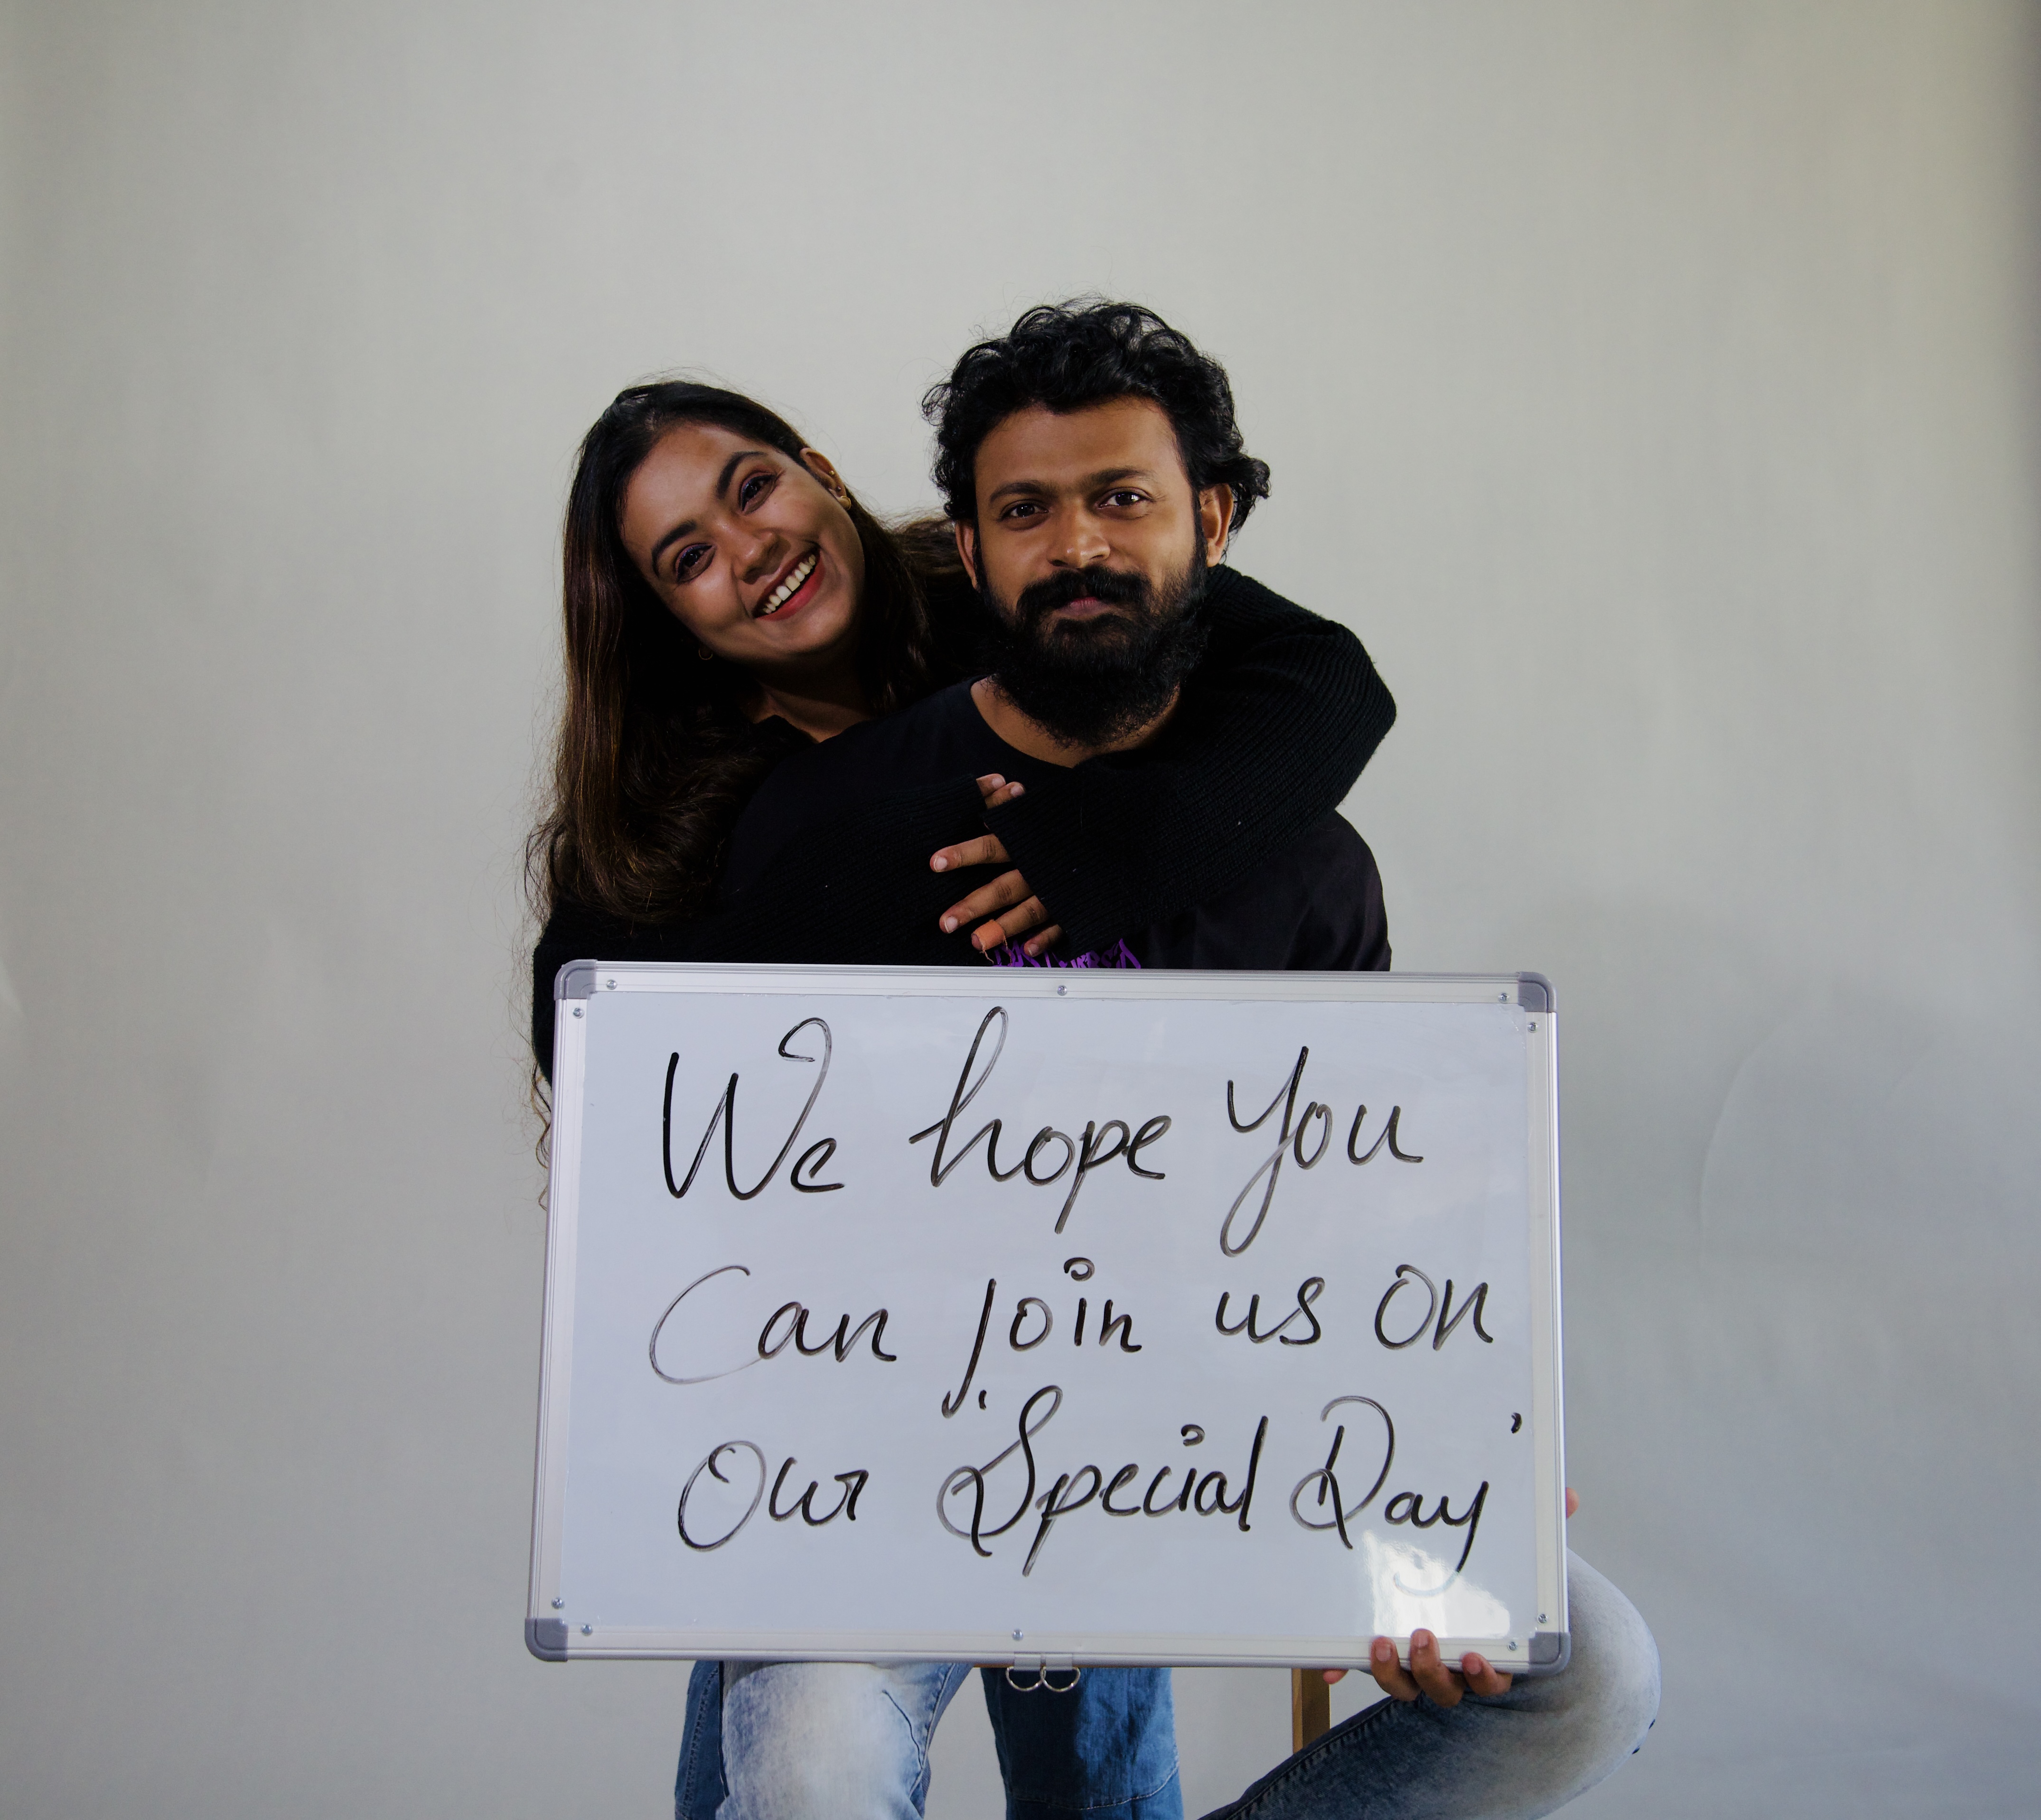 We hope you
Can join us on
Our 'Special Day'